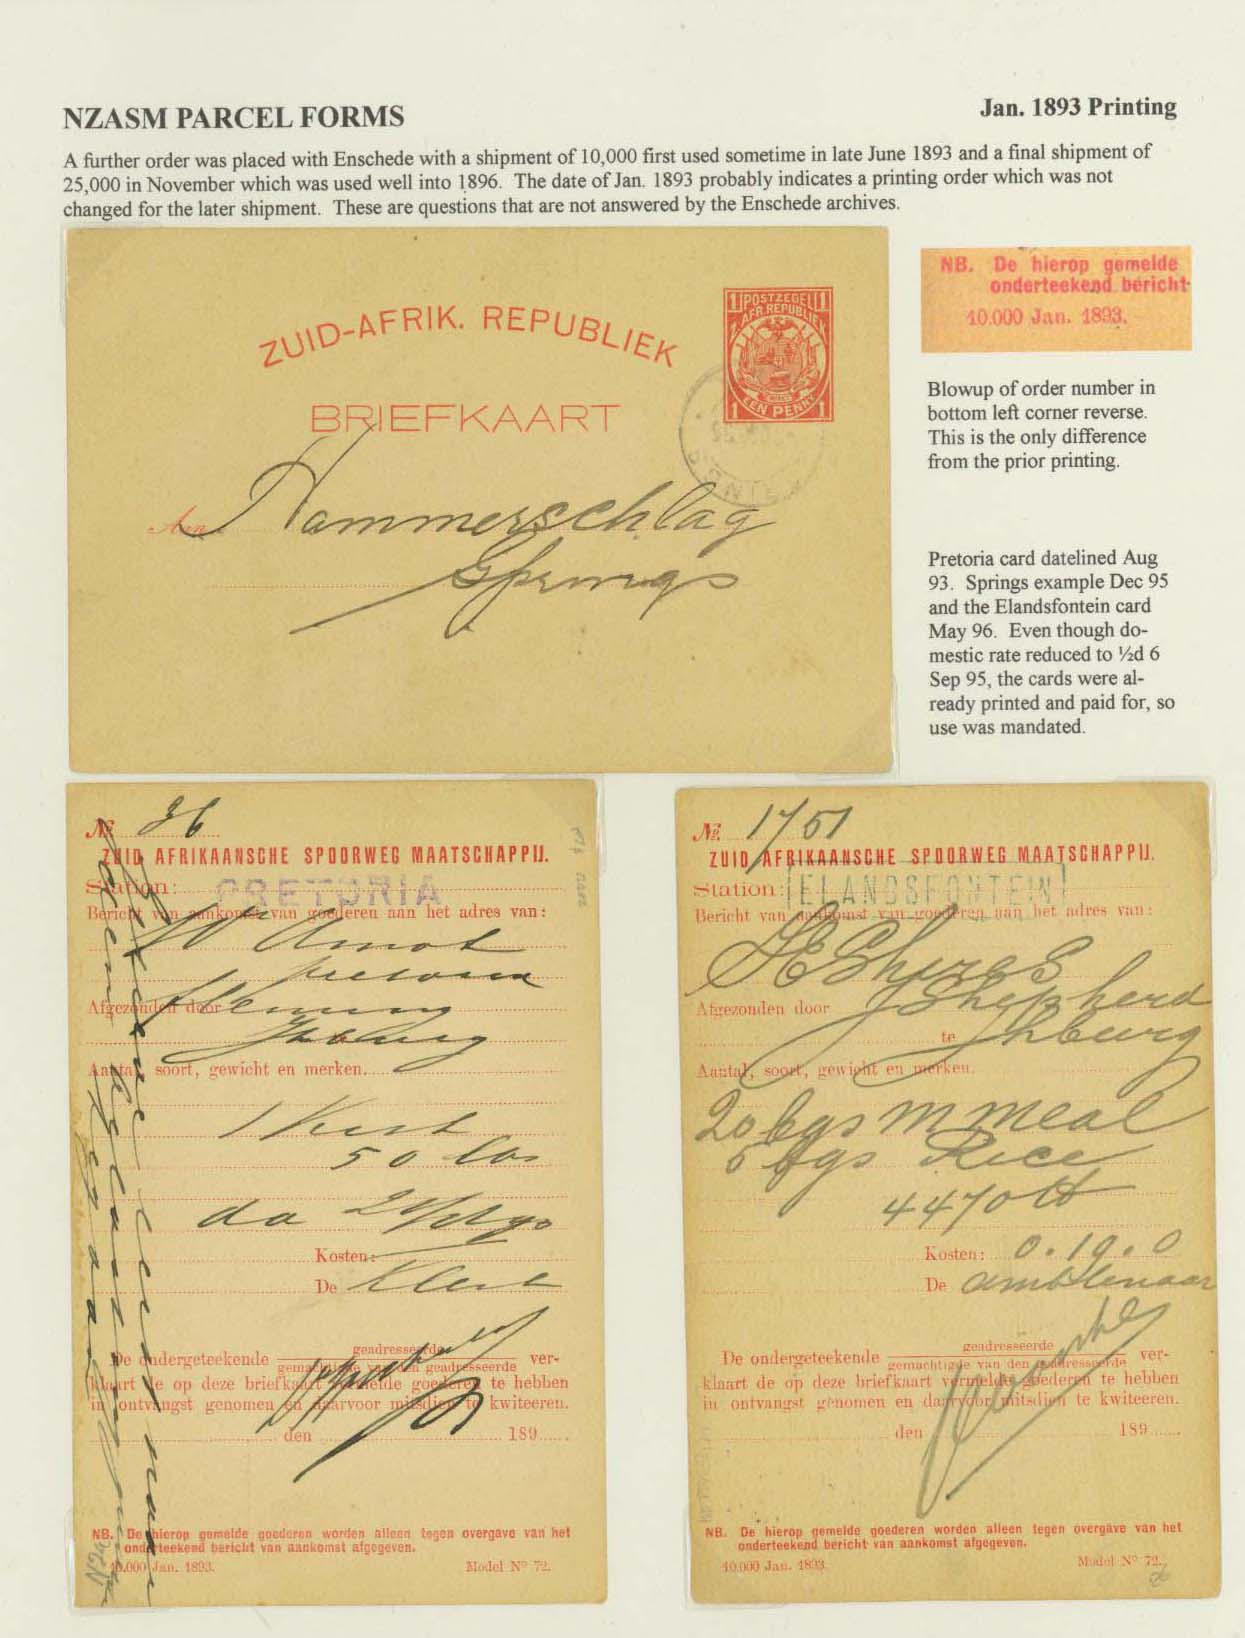 NZASM PARCEL FORMS
Jan. 1893 Printing
A further order was placed with Enschede with a shipment of 10,000 first used sometime in late June 1893 and a final shipment of
25,000 in November which was used well into 1896. The date of Jan. 1893 probably indicates a printing order which was not
changed for the later shipment. These are questions that are not answered by the Enschede archives.
ZUID-AFRIK. REPUBLIEK
BRIEFKAART
1 POSTZEGEL 1
Z. AFR. REPUBLIEK
1 EEN PENNY 1
Aan Hammerschlag
Springs
NB. De hierop gemelde
onderteekend bericht
10.000 Jan. 1893.
Blowup of order number in
bottom left corner reverse.
This is the only difference
from the prior printing.
Pretoria card datelined Aug
93. Springs example Dec 95
and the Elandsfontein card
May 96. Even though do-
mestic rate reduced to ½d 6
Sep 95, the cards were al-
ready printed and paid for, so
use was mandated.
No. 36
ZUID AFRIKAANSCHE SPOORWEG MAATSCHAPPIJ.
Station: PRETORIA
Bericht van aankomst van goederen aan het adres van:
Pretoria
Afgezonden door
Jhburg
Aantal, soort, gewicht en merken.
1 Kist
50 lbs
Kosten:
De
De ondergeteekende geadresseerde ver-
gemachtigde van den geadresseerde
klaart de op deze briefkaart vermelde goederen te hebben
in ontvangst genomen en daarvoor mitsdien te kwiteeren.
den 189
NB. De hierop gemelde goederen worden alleen tegen overgave van het
onderteekend bericht van aankomst afgegeven.
10.000 Jan. 1893. Model No 72.
No. 1751
ZUID AFRIKAANSCHE SPOORWEG MAATSCHAPPIJ.
Station: ELANDSFONTEIN
Bericht van aankomst van goederen aan het adres van:
Afgezonden door J Shepherd
te Jhburg
Aantal, soort, gewicht en merken.
20 bgs M meal
5 bgs Rice
4470 lb
Kosten: 0.19.0
De ambtenaar
De ondergeteekende geadresseerde ver-
gemachtigde van den geadresseerde
klaart de op deze briefkaart vermelde goederen te hebben
in ontvangst genomen en daarvoor mitsdien te kwiteeren.
den 189
NB. De hierop gemelde goederen worden alleen tegen overgave van het
onderteekend bericht van aankomst afgegeven.
10.000 Jan. 1893. Model No 72.